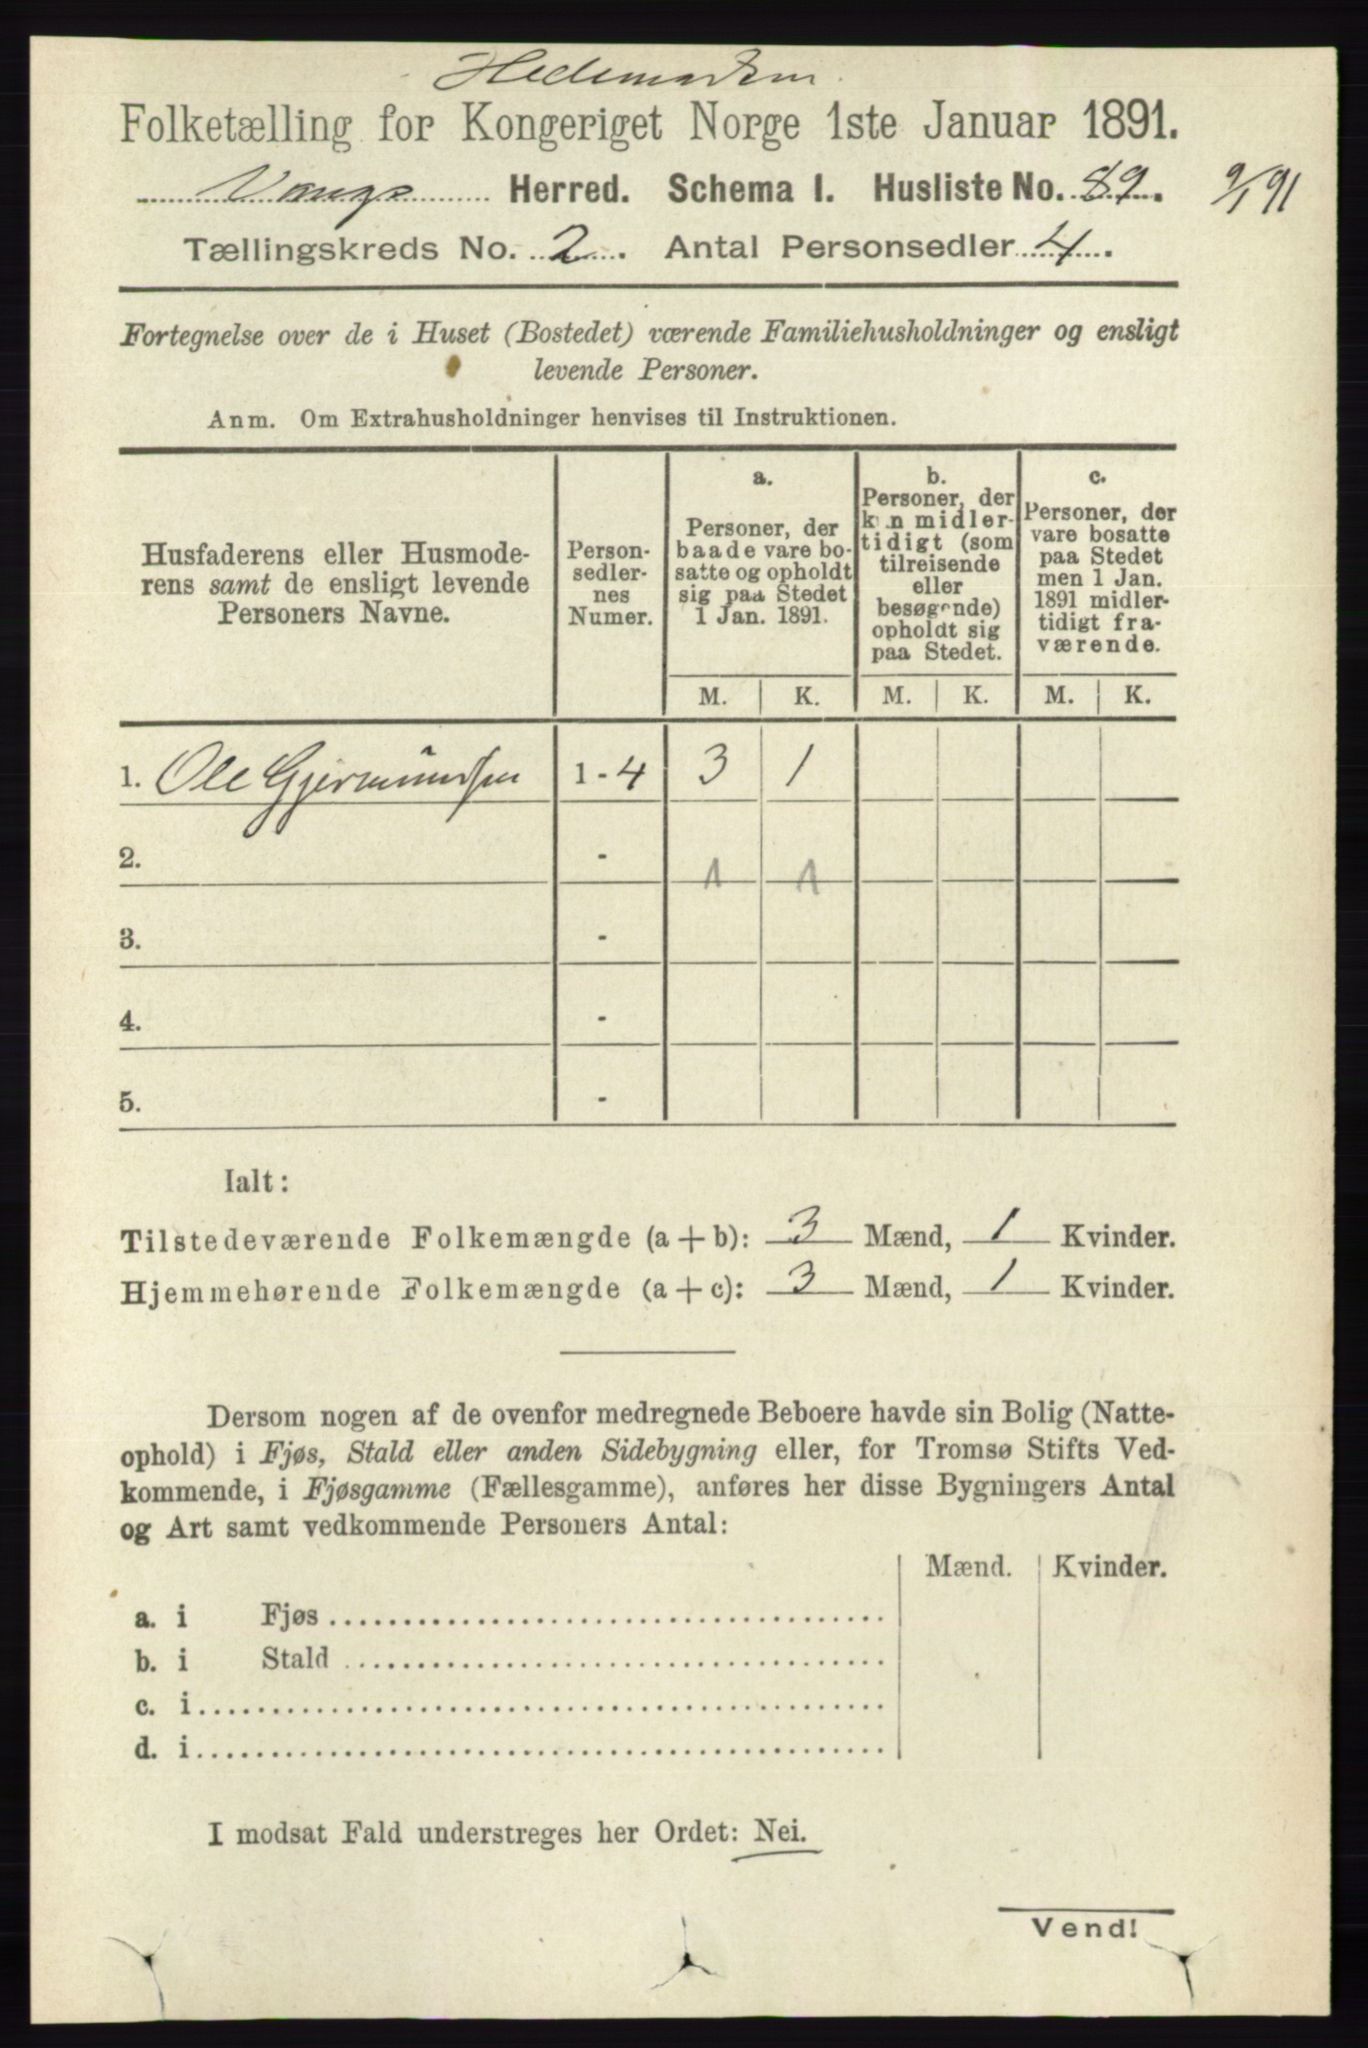 Hedemarken
Folketælling for Kongeriget Norge 1ste Januar 1891.
Vangs Herred. Schema I. Husliste No. 89. 9/1 91
Tællingskreds No. 2. Antal Personsedler 4.
Fortegnelse over de i Huset (Bostedet) værende Familiehusholdninger og ensligt
levende Personer.
Anm. Om Extrahusholdninger henvises til Instruktionen.
Husfaderens eller Husmode-
rens samt de ensligt levende
Personers Navne.
Person-
sedler-
nes
Numer.
a.
Personer, der
baade vare bo-
satte og opholdt
sig paa Stedet
1 Jan. 1891.
b.
Personer, der
kun midler-
tidigt (som
tilreisende
eller
besøgende)
opholdt sig
paa Stedet.
c.
Personer, der
vare bosatte
paa Stedet
men 1 Jan.
1891 midler-
tidigt fra-
værende.
M. K. M. K. M. K.
1. Ole Gjermundsen 1 - 4 3 1
2. - 1 1
3. -
4. -
5. -
Ialt:
Tilstedeværende Folkemængde (a + b): 3 Mænd, 1 Kvinder.
Hjemmehørende Folkemængde (a + c): 3 Mænd, 1 Kvinder.
Dersom nogen af de ovenfor medregnede Beboere havde sin Bolig (Natte-
ophold) i Fjøs, Stald eller anden Sidebygning eller, for Tromsø Stifts Ved-
kommende, i Fjøsgamme (Fællesgamme), anføres her disse Bygningers Antal
og Art samt vedkommende Personers Antal:
Mænd. Kvinder.
a. i Fjøs
b. i Stald
c. i
d. i
I modsat Fald understreges her Ordet: Nei.
Vend!